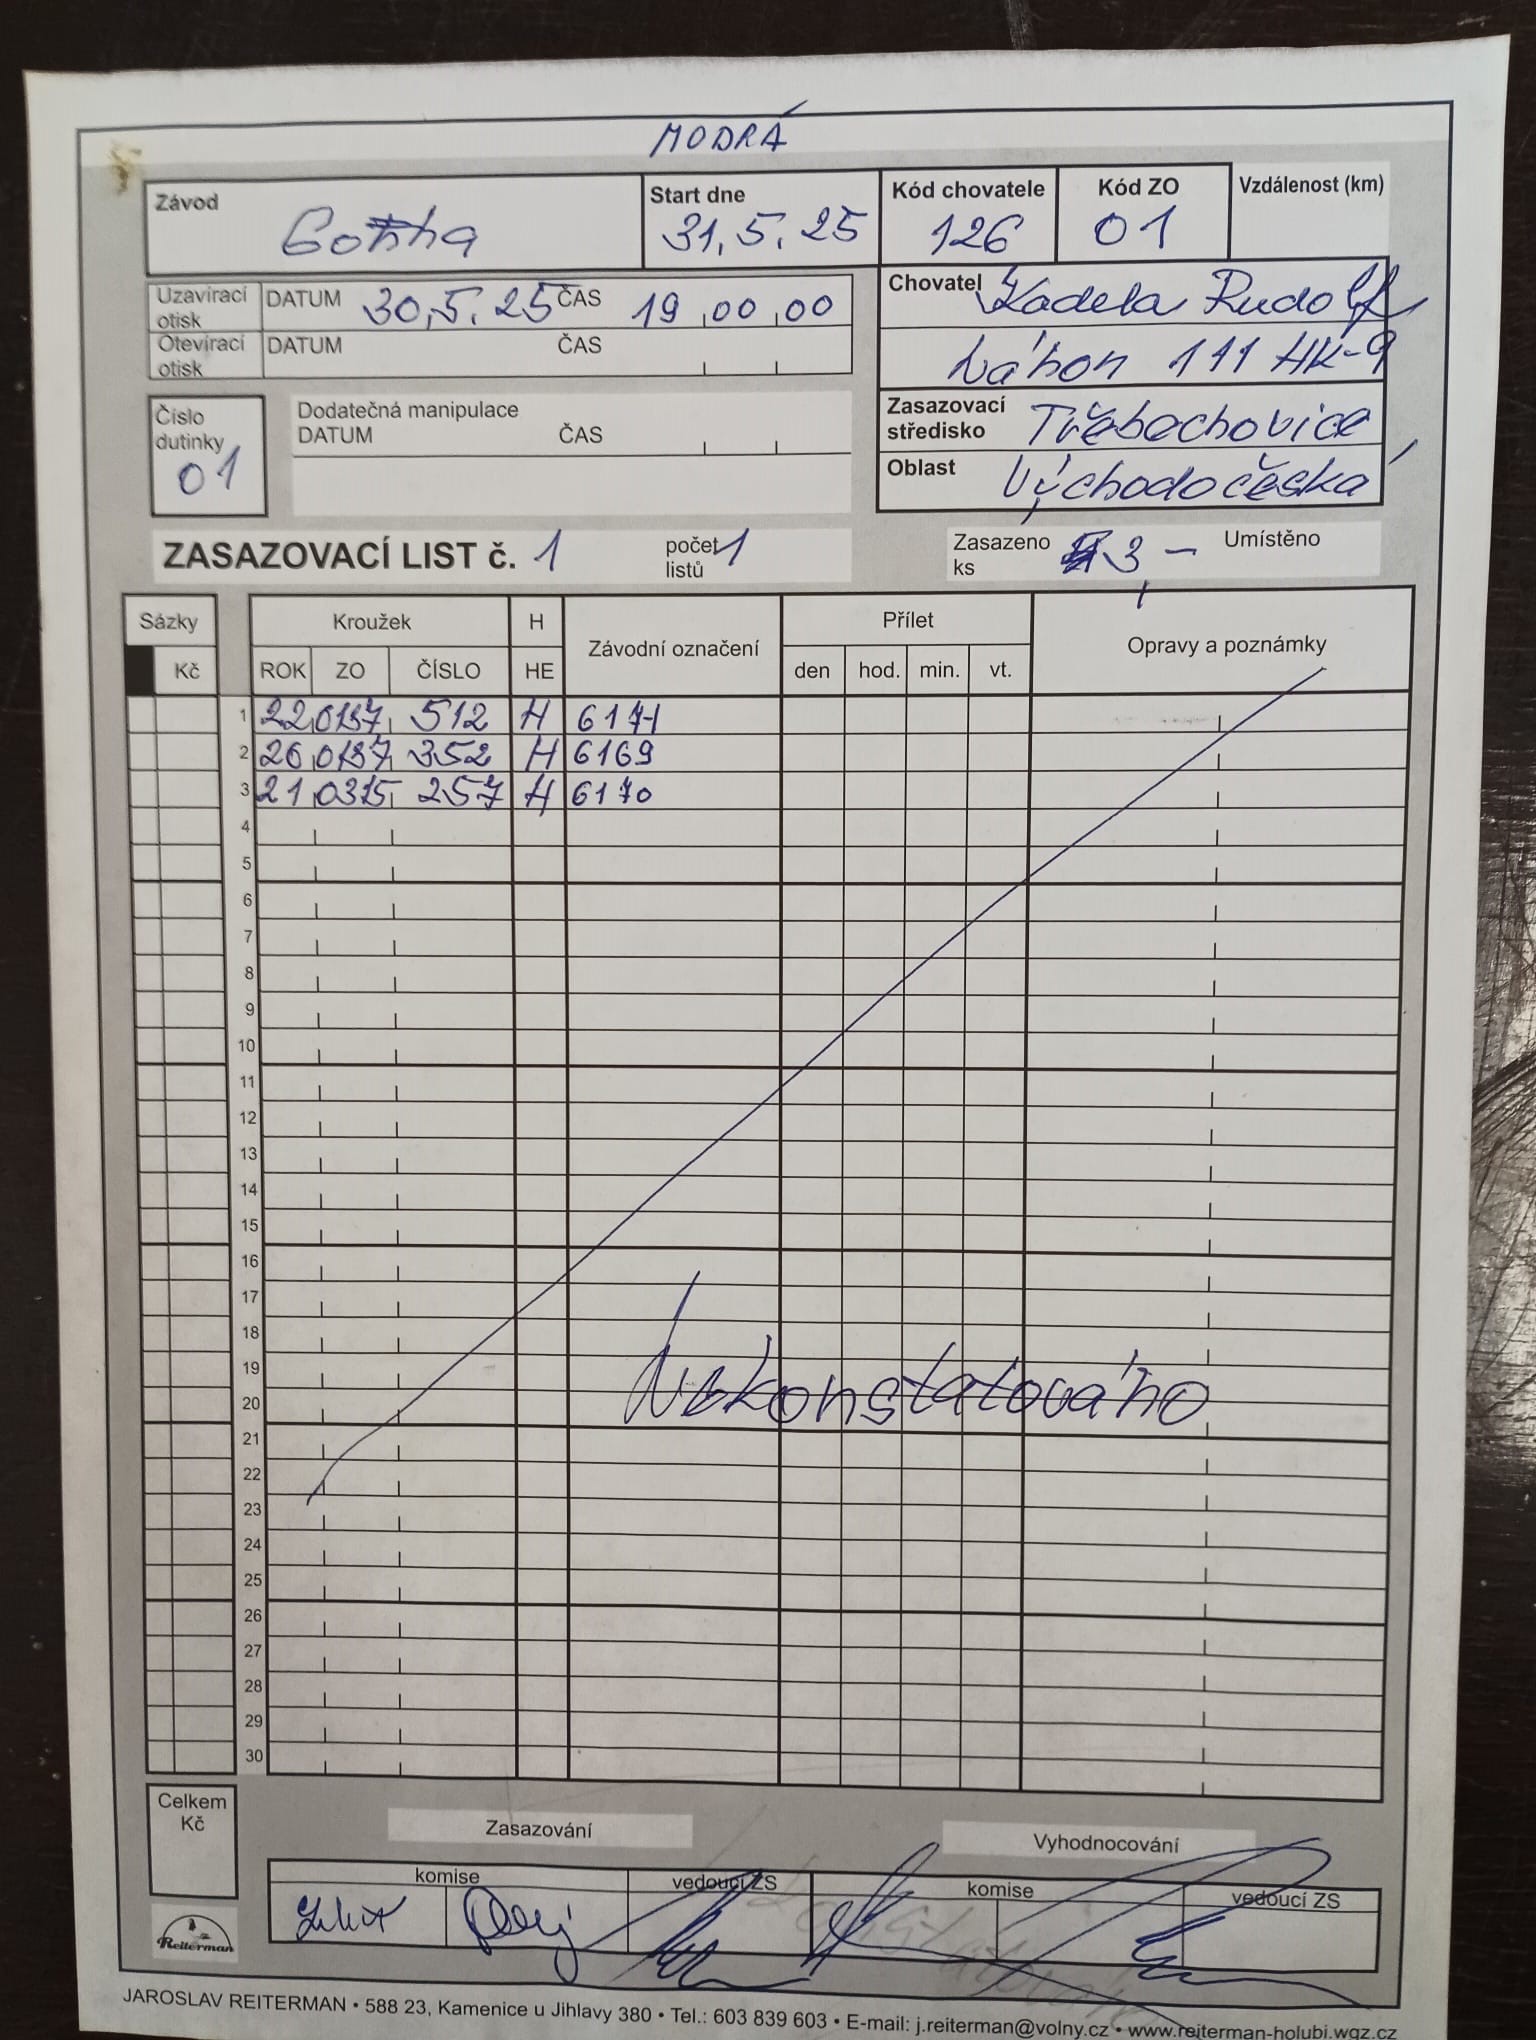 MODRÁ
Závod Gotha Start dne 31.5.25 Kód chovatele 126 Kód ZO 01 Vzdálenost (km)
Uzavírací otisk DATUM 30.5.25 ČAS 19 00 00
Otevírací otisk DATUM ČAS
Chovatel Kadela Rudolf
Náhon 111 HK-9
Číslo dutinky 01
Dodatečná manipulace
DATUM ČAS
Zasazovací středisko Třebechovice
Oblast Východočeská
ZASAZOVACÍ LIST č. 1 počet listů 1 Zasazeno ks 3 - Umístěno
Sázky Kroužek H Závodní označení Přílet Opravy a poznámky
Kč ROK ZO ČÍSLO HE den hod. min. vt.
1 22 0137 512 H 6171
2 20 0137 352 H 6169
3 21 0315 257 H 6170
4
5
6
7
8
9
10
11
12
13
14
15
16
17
18
19
Nekonstatováno
20
21
22
23
24
25
26
27
28
29
30
Celkem Kč
Zasazování Vyhodnocování
komise vedoucí ZS komise vedoucí ZS
Reiterman
JAROSLAV REITERMAN • 588 23, Kamenice u Jihlavy 380 • Tel.: 603 839 603 • E-mail: j.reiterman@volny.cz • www.reiterman-holubi.wgz.cz